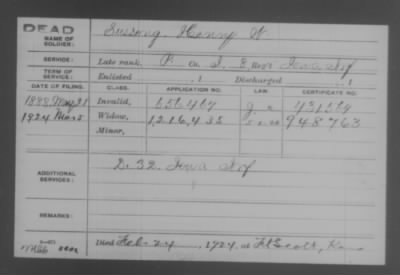 DEAD
NAME OF SOLDIER: Sussong Henry W.
SERVICE: Late rank, P Co. I, 8 Reg't Iowa Inf
TERM OF SERVICE: Enlisted , 1 Discharged , 1
DATE OF FILING. CLASS. APPLICATION NO. LAW CERTIFICATE NO.
1888 May 21 Invalid, 656407 431569
1924 Mar 5 Widow, 1,216,435 948763
Minor,
ADDITIONAL SERVICES: D. 32. Iowa Inf
REMARKS:
Died Feb. 24, 1924, at Ft Scott, Kan